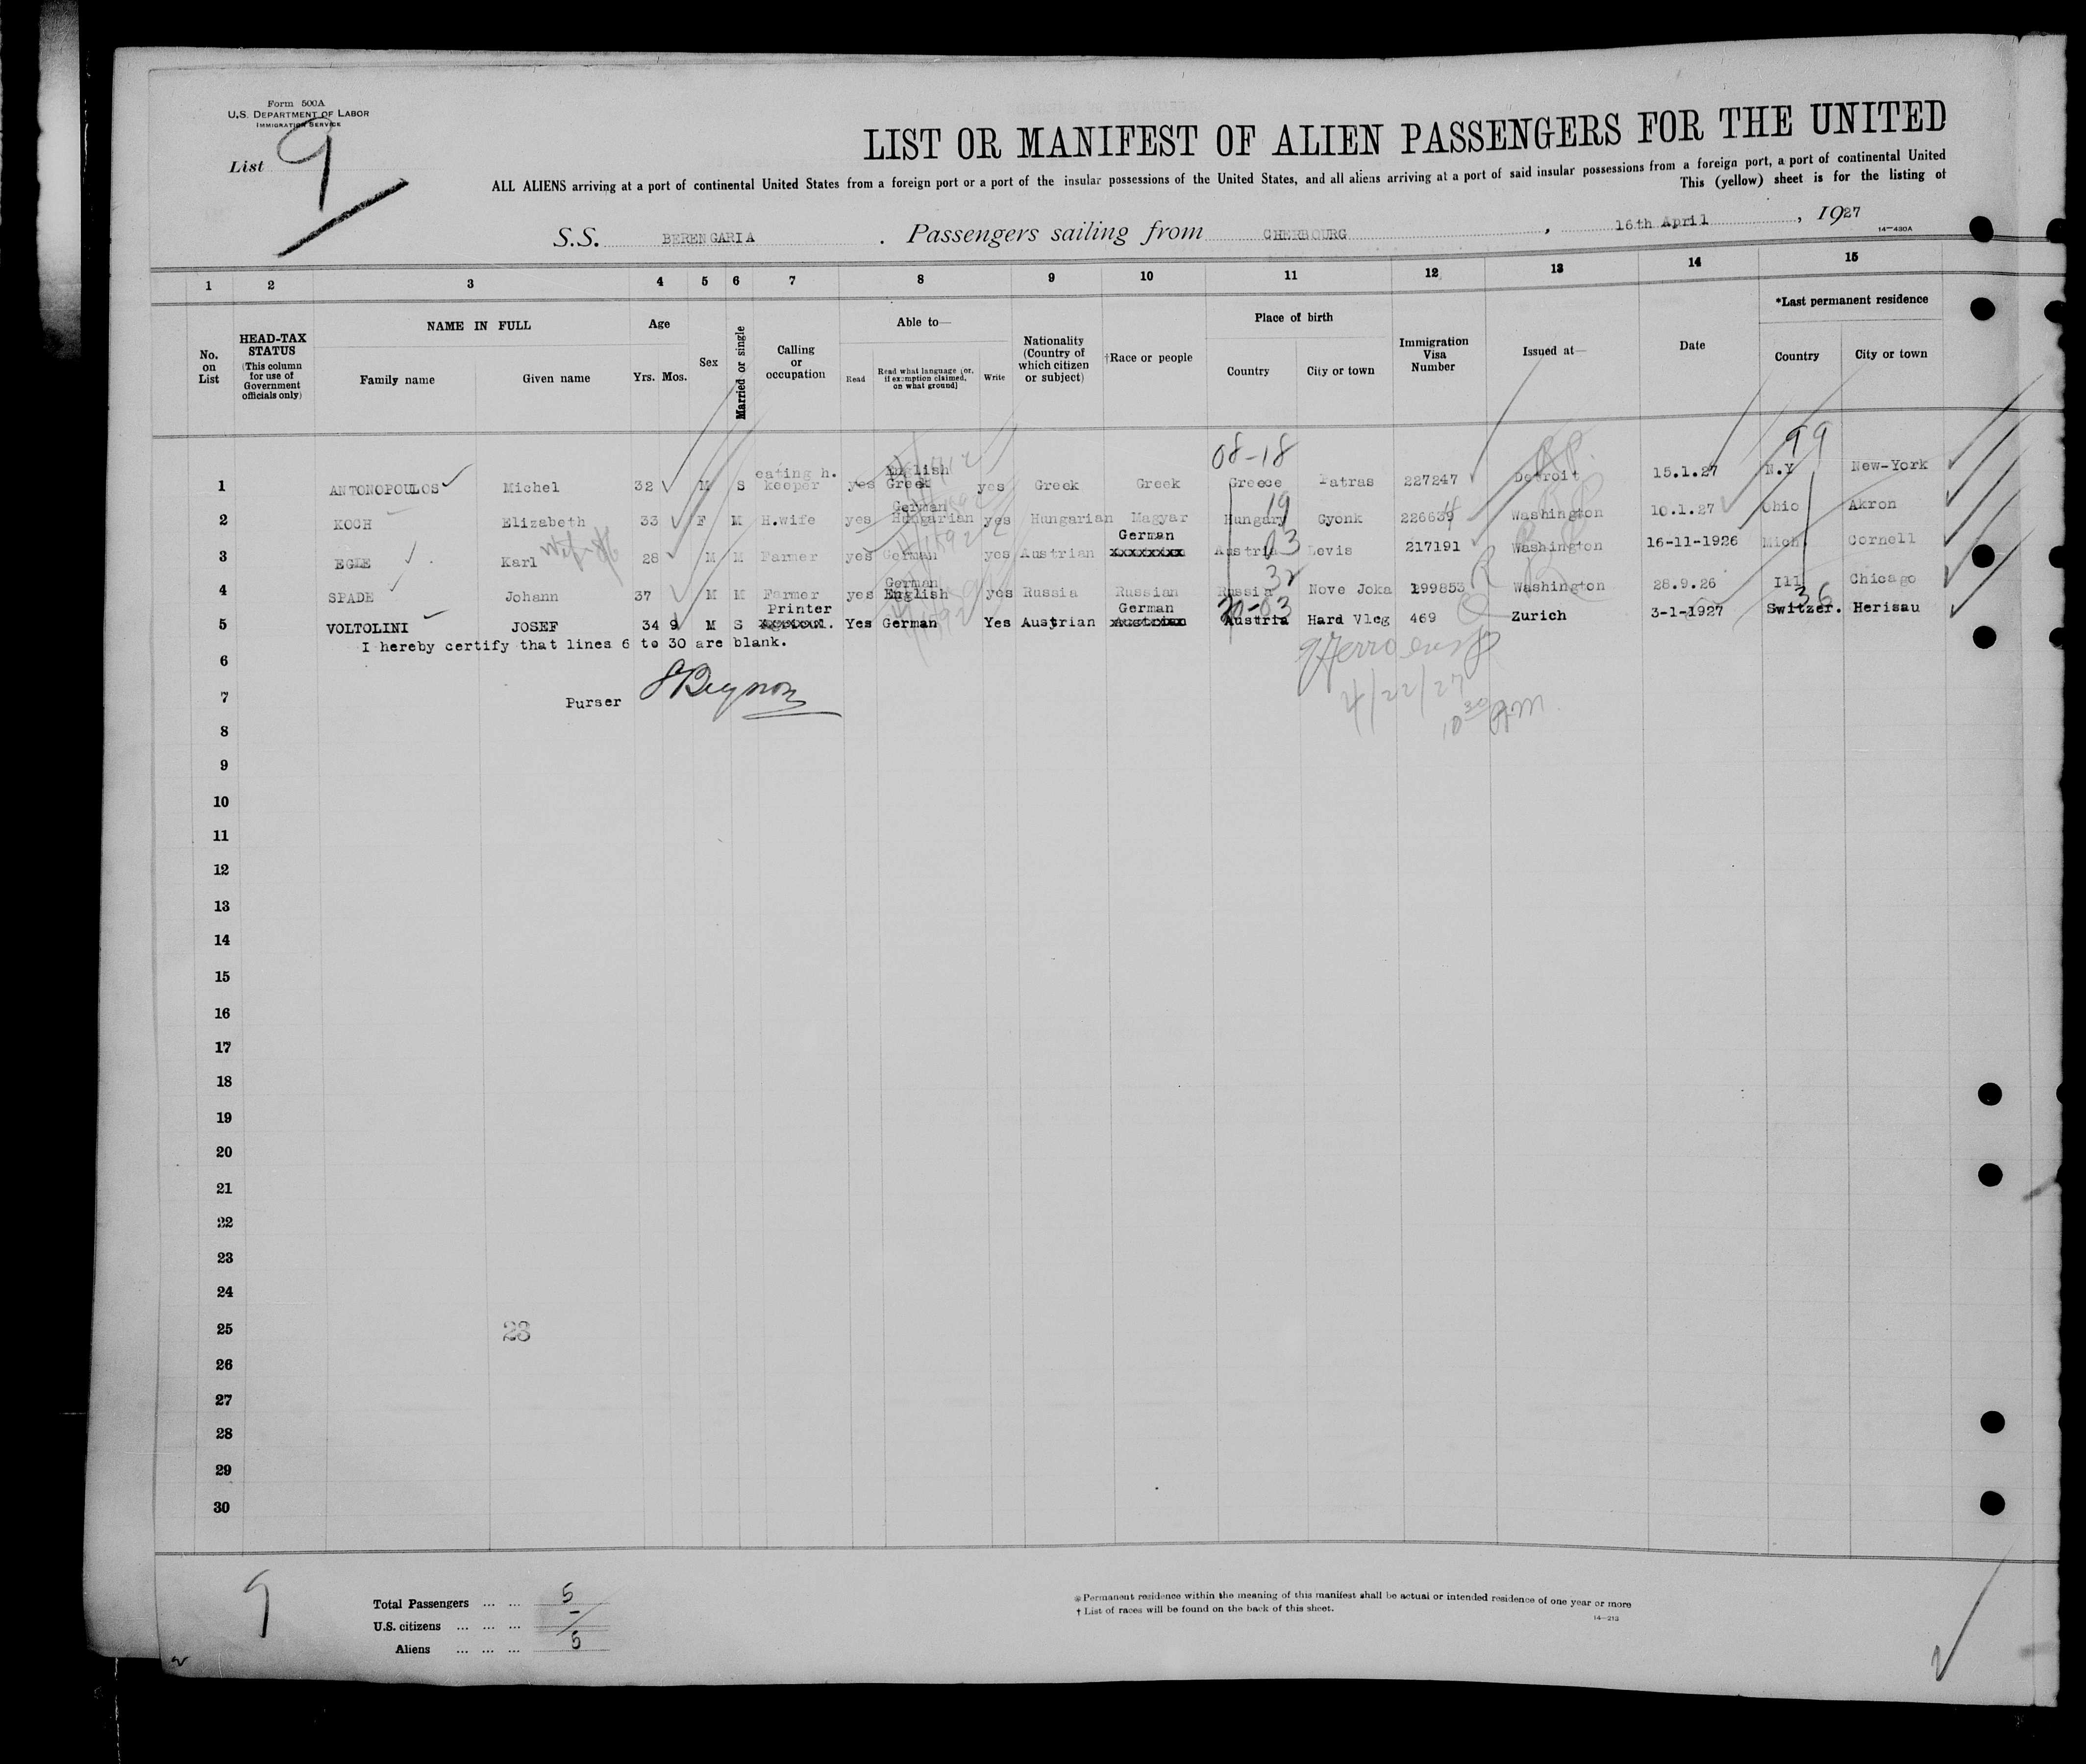 Form 500A
U.S. DEPARTMENT OF LABOR
IMMIGRATION SERVICE
List 9
LIST OR MANIFEST OF ALIEN PASSENGERS FOR THE UNITED
ALL ALIENS arriving at a port of continental United States from a foreign port or a port of the insular possessions of the United States, and all aliens arriving at a port of said insular possessions from a foreign port, a port of continental United
This (yellow) sheet is for the listing of
S.S. BERENGARIA . Passengers sailing from CHERBOURG , 16th April , 1927
14-430A
1 2 3 4 5 6 7 8 9 10 11 12 13 14 15
No. on List
HEAD-TAX STATUS (This column for use of Government officials only)
NAME IN FULL
Family name Given name
Age
Yrs. Mos.
Sex
Married or single
Calling or occupation
Able to—
Read Read what language [or, if exemption claimed, on what ground] Write
Nationality (Country of which citizen or subject)
†Race or people
Place of birth
Country City or town
Immigration Visa Number
Issued at—
Date
*Last permanent residence
Country City or town
08-18 99
eating h. English
1 ANTONOPOULOS Michel 32 M S keeper yes Greek yes Greek Greek Greece Patras 227247 Detroit 15.1.27 N.Y New-York
German 19
2 KOCH Elizabeth 33 F M H.wife yes Hungarian yes Hungarian Magyar Hungary Gyonk 226639 Washington 10.1.27 Ohio Akron
German 03
3 EGLE Karl 28 M M Farmer yes German yes Austrian xxxxxxxx Austria Levis 217191 Washington 16-11-1926 Mich Cornell
German 32
4 SPADE Johann 37 M M Farmer yes English yes Russia Russian Russia Nove Joka 199853 Washington 28.9.26 Ill Chicago
Printer German 03 36
5 VOLTOLINI JOSEF 34 9 M S Yes German Yes Austrian Austrian Austria Hard Vlcg 469 Zurich 3-1-1927 Switzer. Herisau
I hereby certify that lines 6 to 30 are blank.
6
Purser
7
4/22/27
10 30 AM
8
9
10
11
12
13
14
15
16
17
18
19
20
21
22
23
24
25 23
26
27
28
29
30
9
Total Passengers ... ... 5
U.S. citizens ... ... ... -
Aliens ... ... ... 5
* Permanent residence within the meaning of this manifest shall be actual or intended residence of one year or more
† List of races will be found on the back of this sheet.
14-213